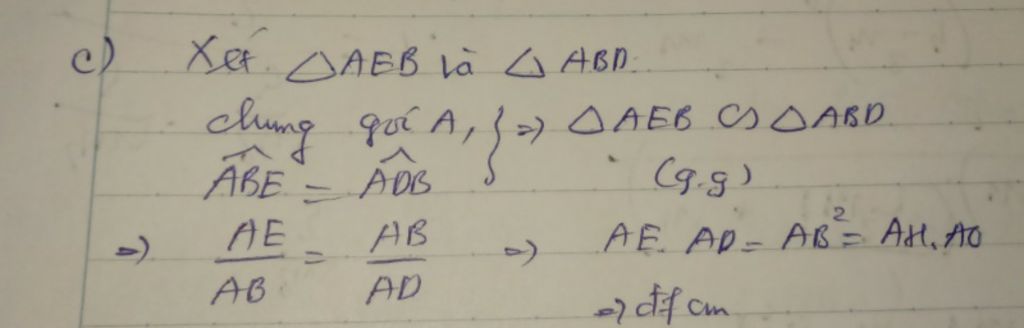 c) Xét △AEB và △ABD.
chung góc A, } => △AEB ∽ △ABD
ABE = ADB (g.g)
=> AE/AB = AB/AD => AE. AD = AB² = AH. AO
=> đfcm